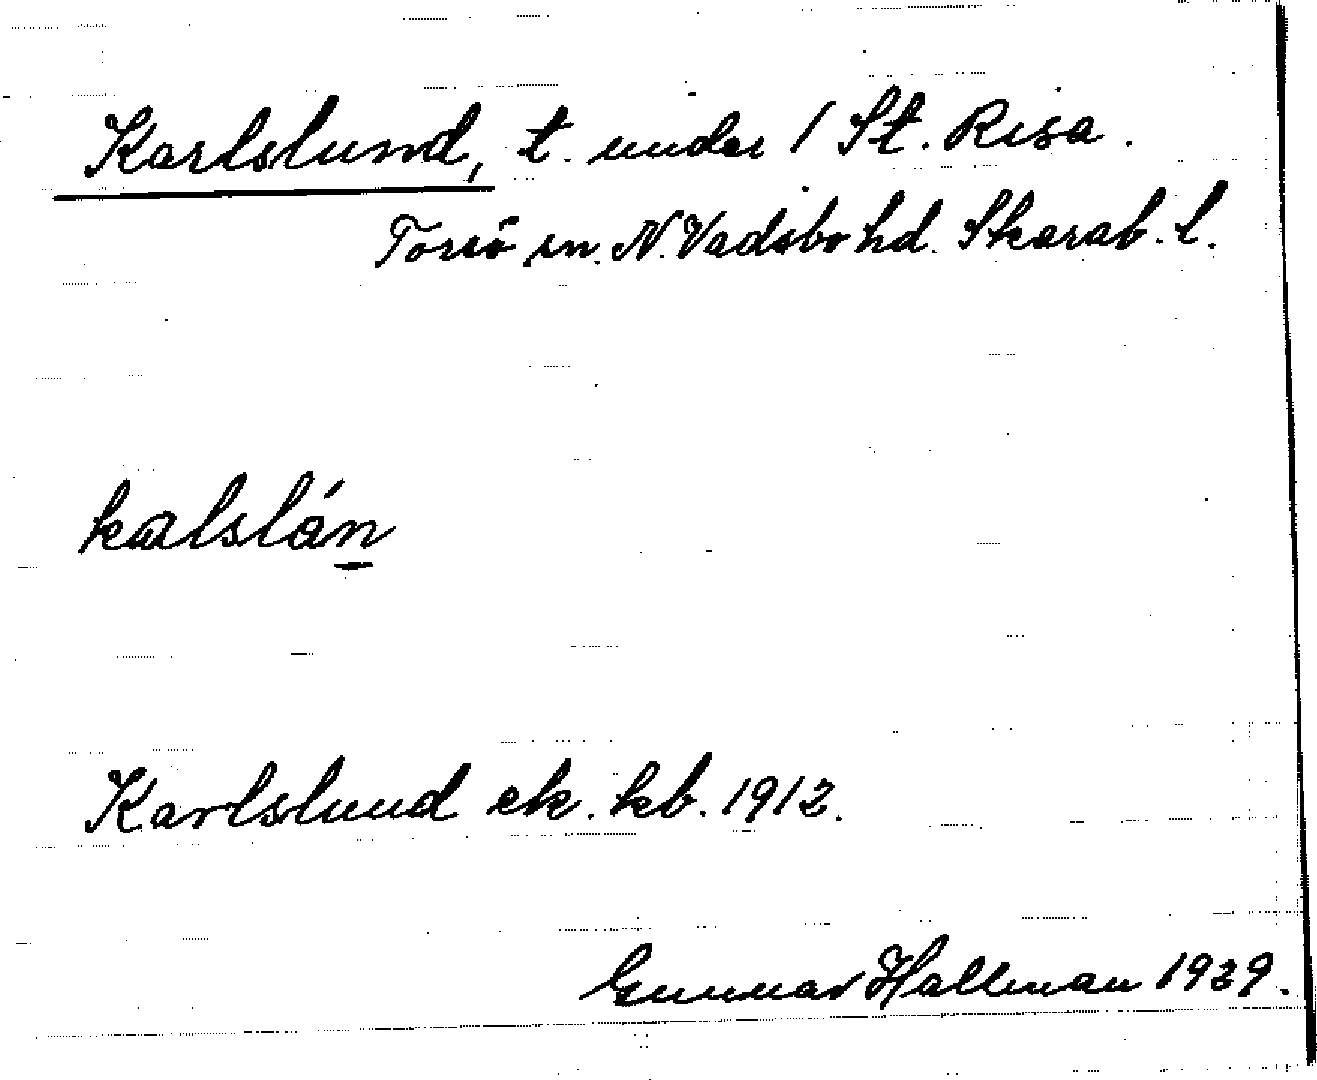 Karlslund, t. under 1 St. Risa.
Torsö sn. N. Vadsbo hd. Skarab. l.
kalslán
Karlslund ek. kb. 1912.
Gunnar Hallman 1939.